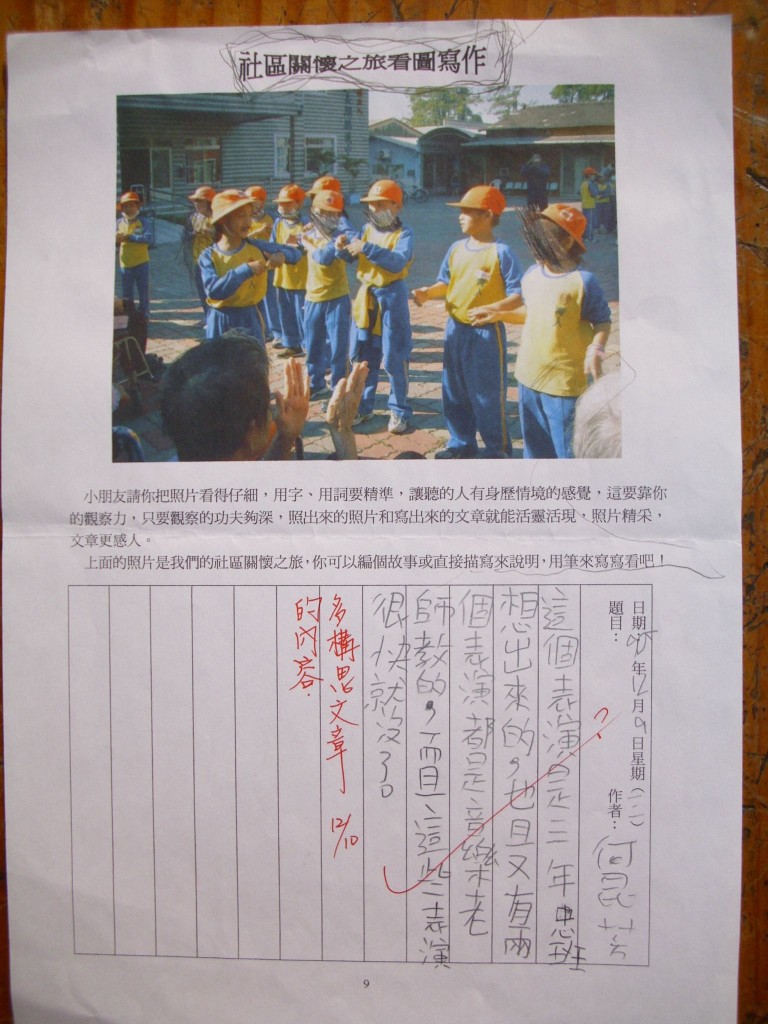 社區關懷之旅看圖寫作
小朋友請你把照片看得仔細，用字、用詞要精準，讓聽的人有身歷情境的感覺，這要靠你
的觀察力，只要觀察的功夫夠深，照出來的照片和寫出來的文章就能活靈活現，照片精采，
文章更感人。
上面的照片是我們的社區關懷之旅，你可以編個故事或直接描寫來說明，用筆來寫寫看吧！
日期：95年12月9日星期（二）
題目：？ 作者：何昆
這個表演是三年忠班
想出來的，也且又有兩
個表演都是音樂老
師教的，而且這些表演
很快就沒了。
多構思文章 12/10
的內容.
9